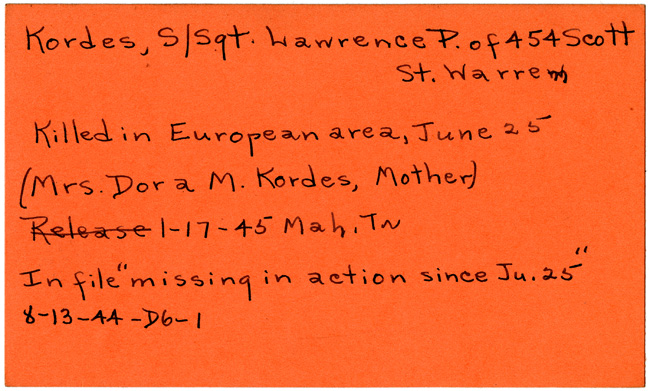 Kordes, S/Sgt. Lawrence P. of 454 Scott
St. Warren
Killed in European area, June 25
(Mrs. Dora M. Kordes, Mother)
Release 1-17-45 Mah. Tw
In file "missing in action since Ju. 25"
8-13-44-D6-1